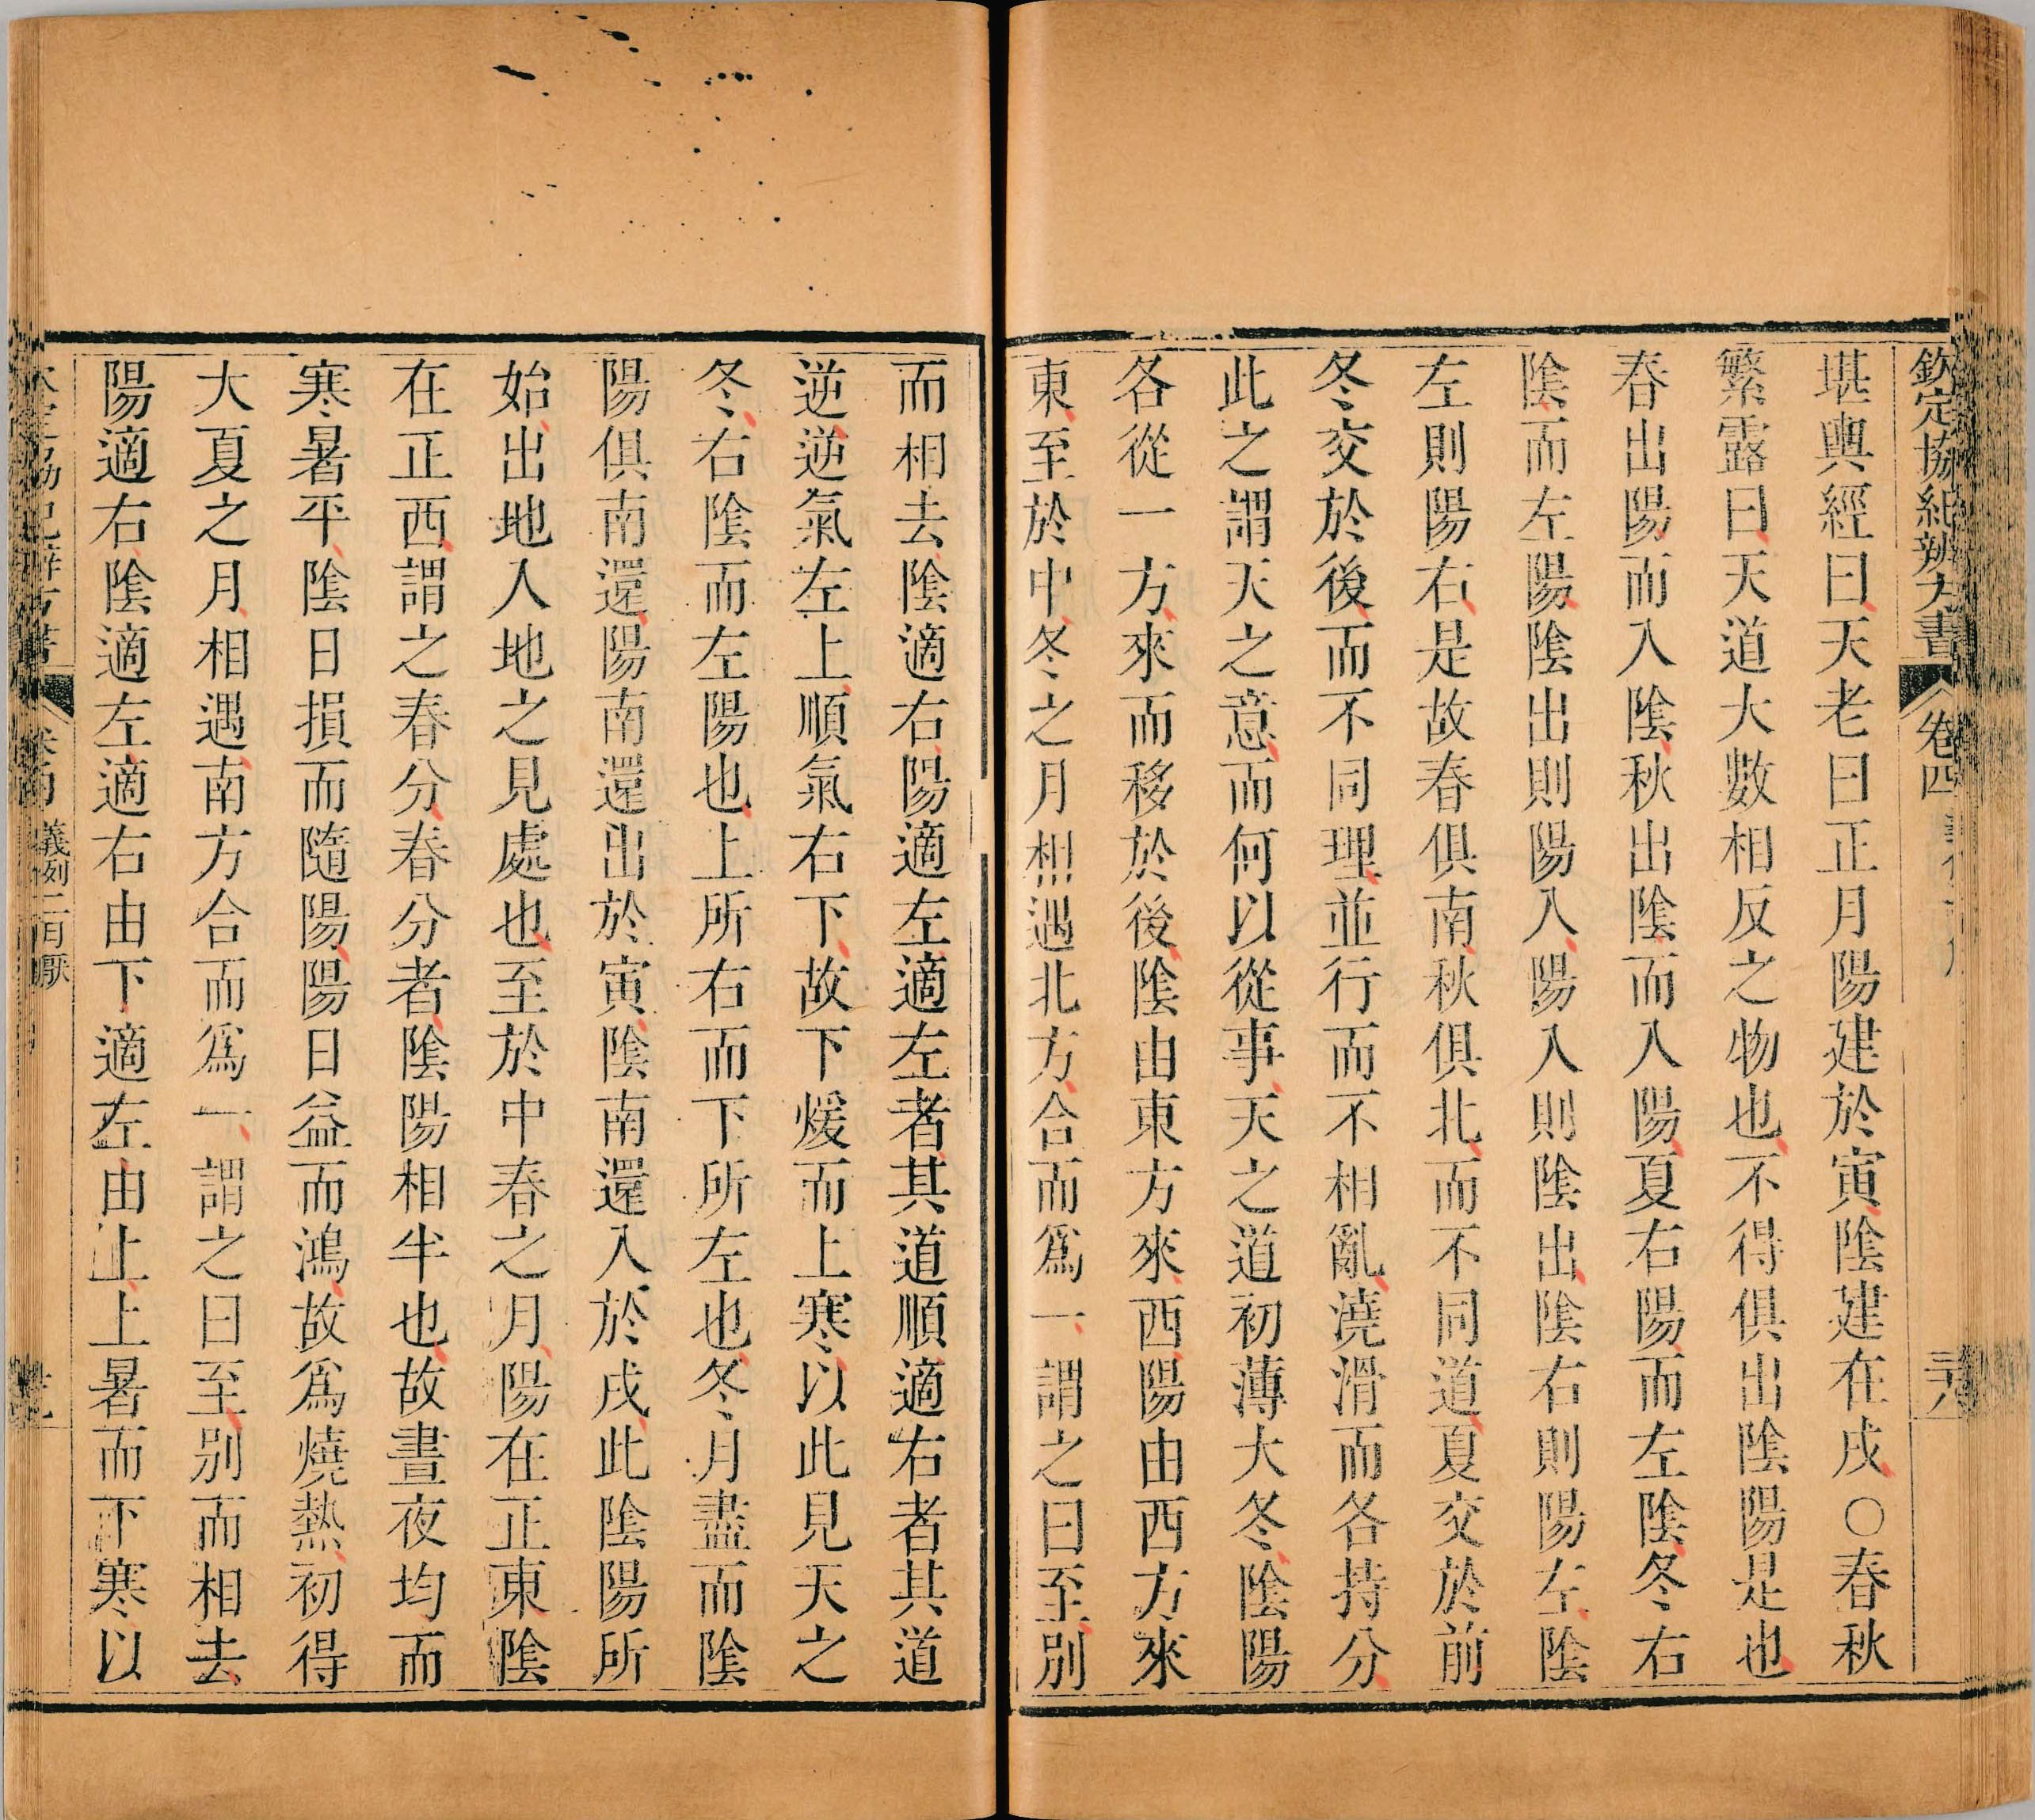 欽定協紀辨方書 卷四
堪輿經曰天老曰正月陽建於寅陰建在戌○春秋
繁露曰天道大數相反之物也不得俱出陰陽是也
春出陽而入陰秋出陰而入陽夏右陽而左陰冬右
陰而左陽陰出則陽入陽入則陰出陰右則陽左陰
左則陽右是故春俱南秋俱北而不同道夏交於前
冬交於後而不同理並行而不相亂澆滑而各持分
此之謂天之意而何以從事天之道初薄大冬陰陽
各從一方來而移於後陰由東方來西陽由西方來
東至於中冬之月相遇北方合而爲一謂之曰至別
而相去陰適右陽適左適左者其道順適右者其道
逆逆氣左上順氣右下故下煖而上寒以此見天之
冬右陰而左陽也上所右而下所左也冬月盡而陰
陽俱南還陽南還出於寅陰南還入於戌此陰陽所
始出地入地之見處也至於中春之月陽在正東陰
在正西謂之春分春分者陰陽相半也故晝夜均而
寒暑平陰日損而隨陽陽日益而鴻故爲燒熱初得
大夏之月相遇南方合而爲一謂之曰至別而相去
陽適右陰適左適右由下適左由上上暑而下寒以
義例二 月厭